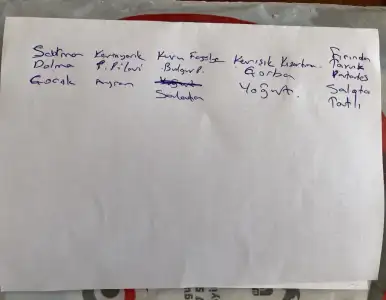 Sarma Karnıyarık Kuru Fasulye Karışık Kızartma Fırında
Dolma P. Pilavi Bulgur P. Çorba Tavuk
Patates
Cacık Ayran Yoğurt Yoğurt Salata
Salata Tatlı